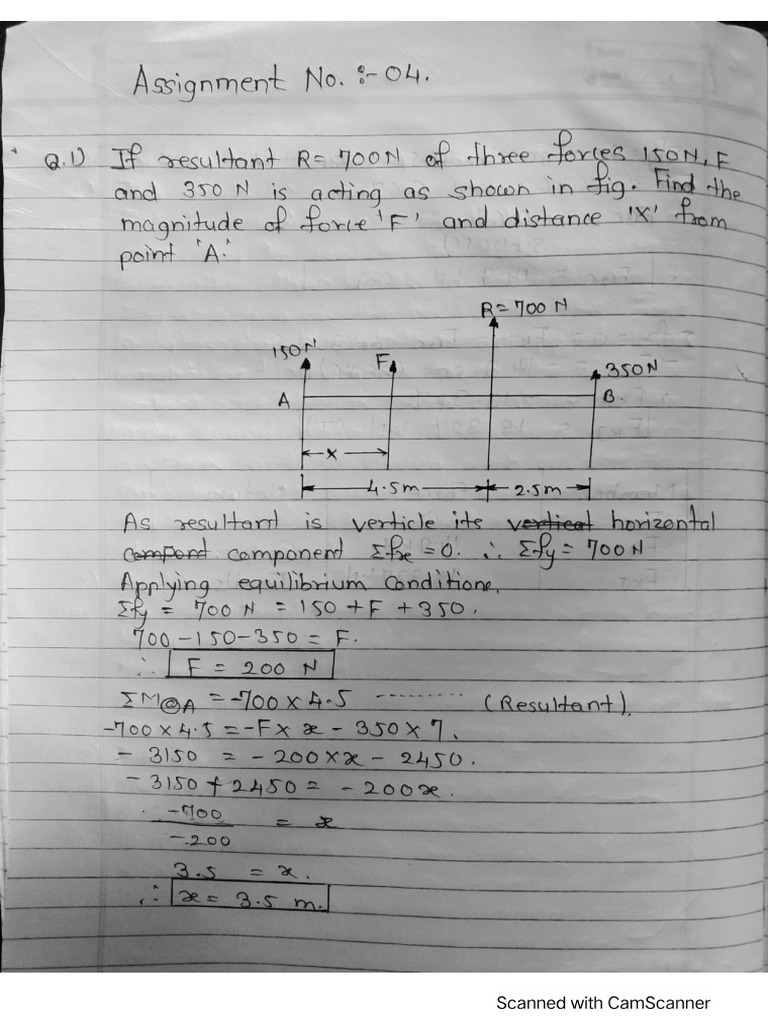 Assignment No. :- 04.
Q.1) If resultant R= 700N of three forces 150N, F
and 350 N is acting as shown in fig. Find the
magnitude of force 'F' and distance 'X' from
point 'A.'
R=700 N
150N
F
350N
A
B.
x
4.5m
2.5m
As resultant is verticle its vertical horizontal
compond component Σfx = 0. ∴ Σfy = 700N
Applying equilibrium Conditione,
Σfy = 700 N = 150 + F + 350.
700 - 150 - 350 = F.
∴ F = 200 N
ΣM@A = -700 x 4.5 -------- (Resultant).
-700 x 4.5 = -F x x - 350 x 7.
- 3150 = - 200 x x - 2450.
- 3150 + 2450 = - 200x.
-700
= x
-200
3.5 = x.
∴ x = 3.5 m.
Scanned with CamScanner